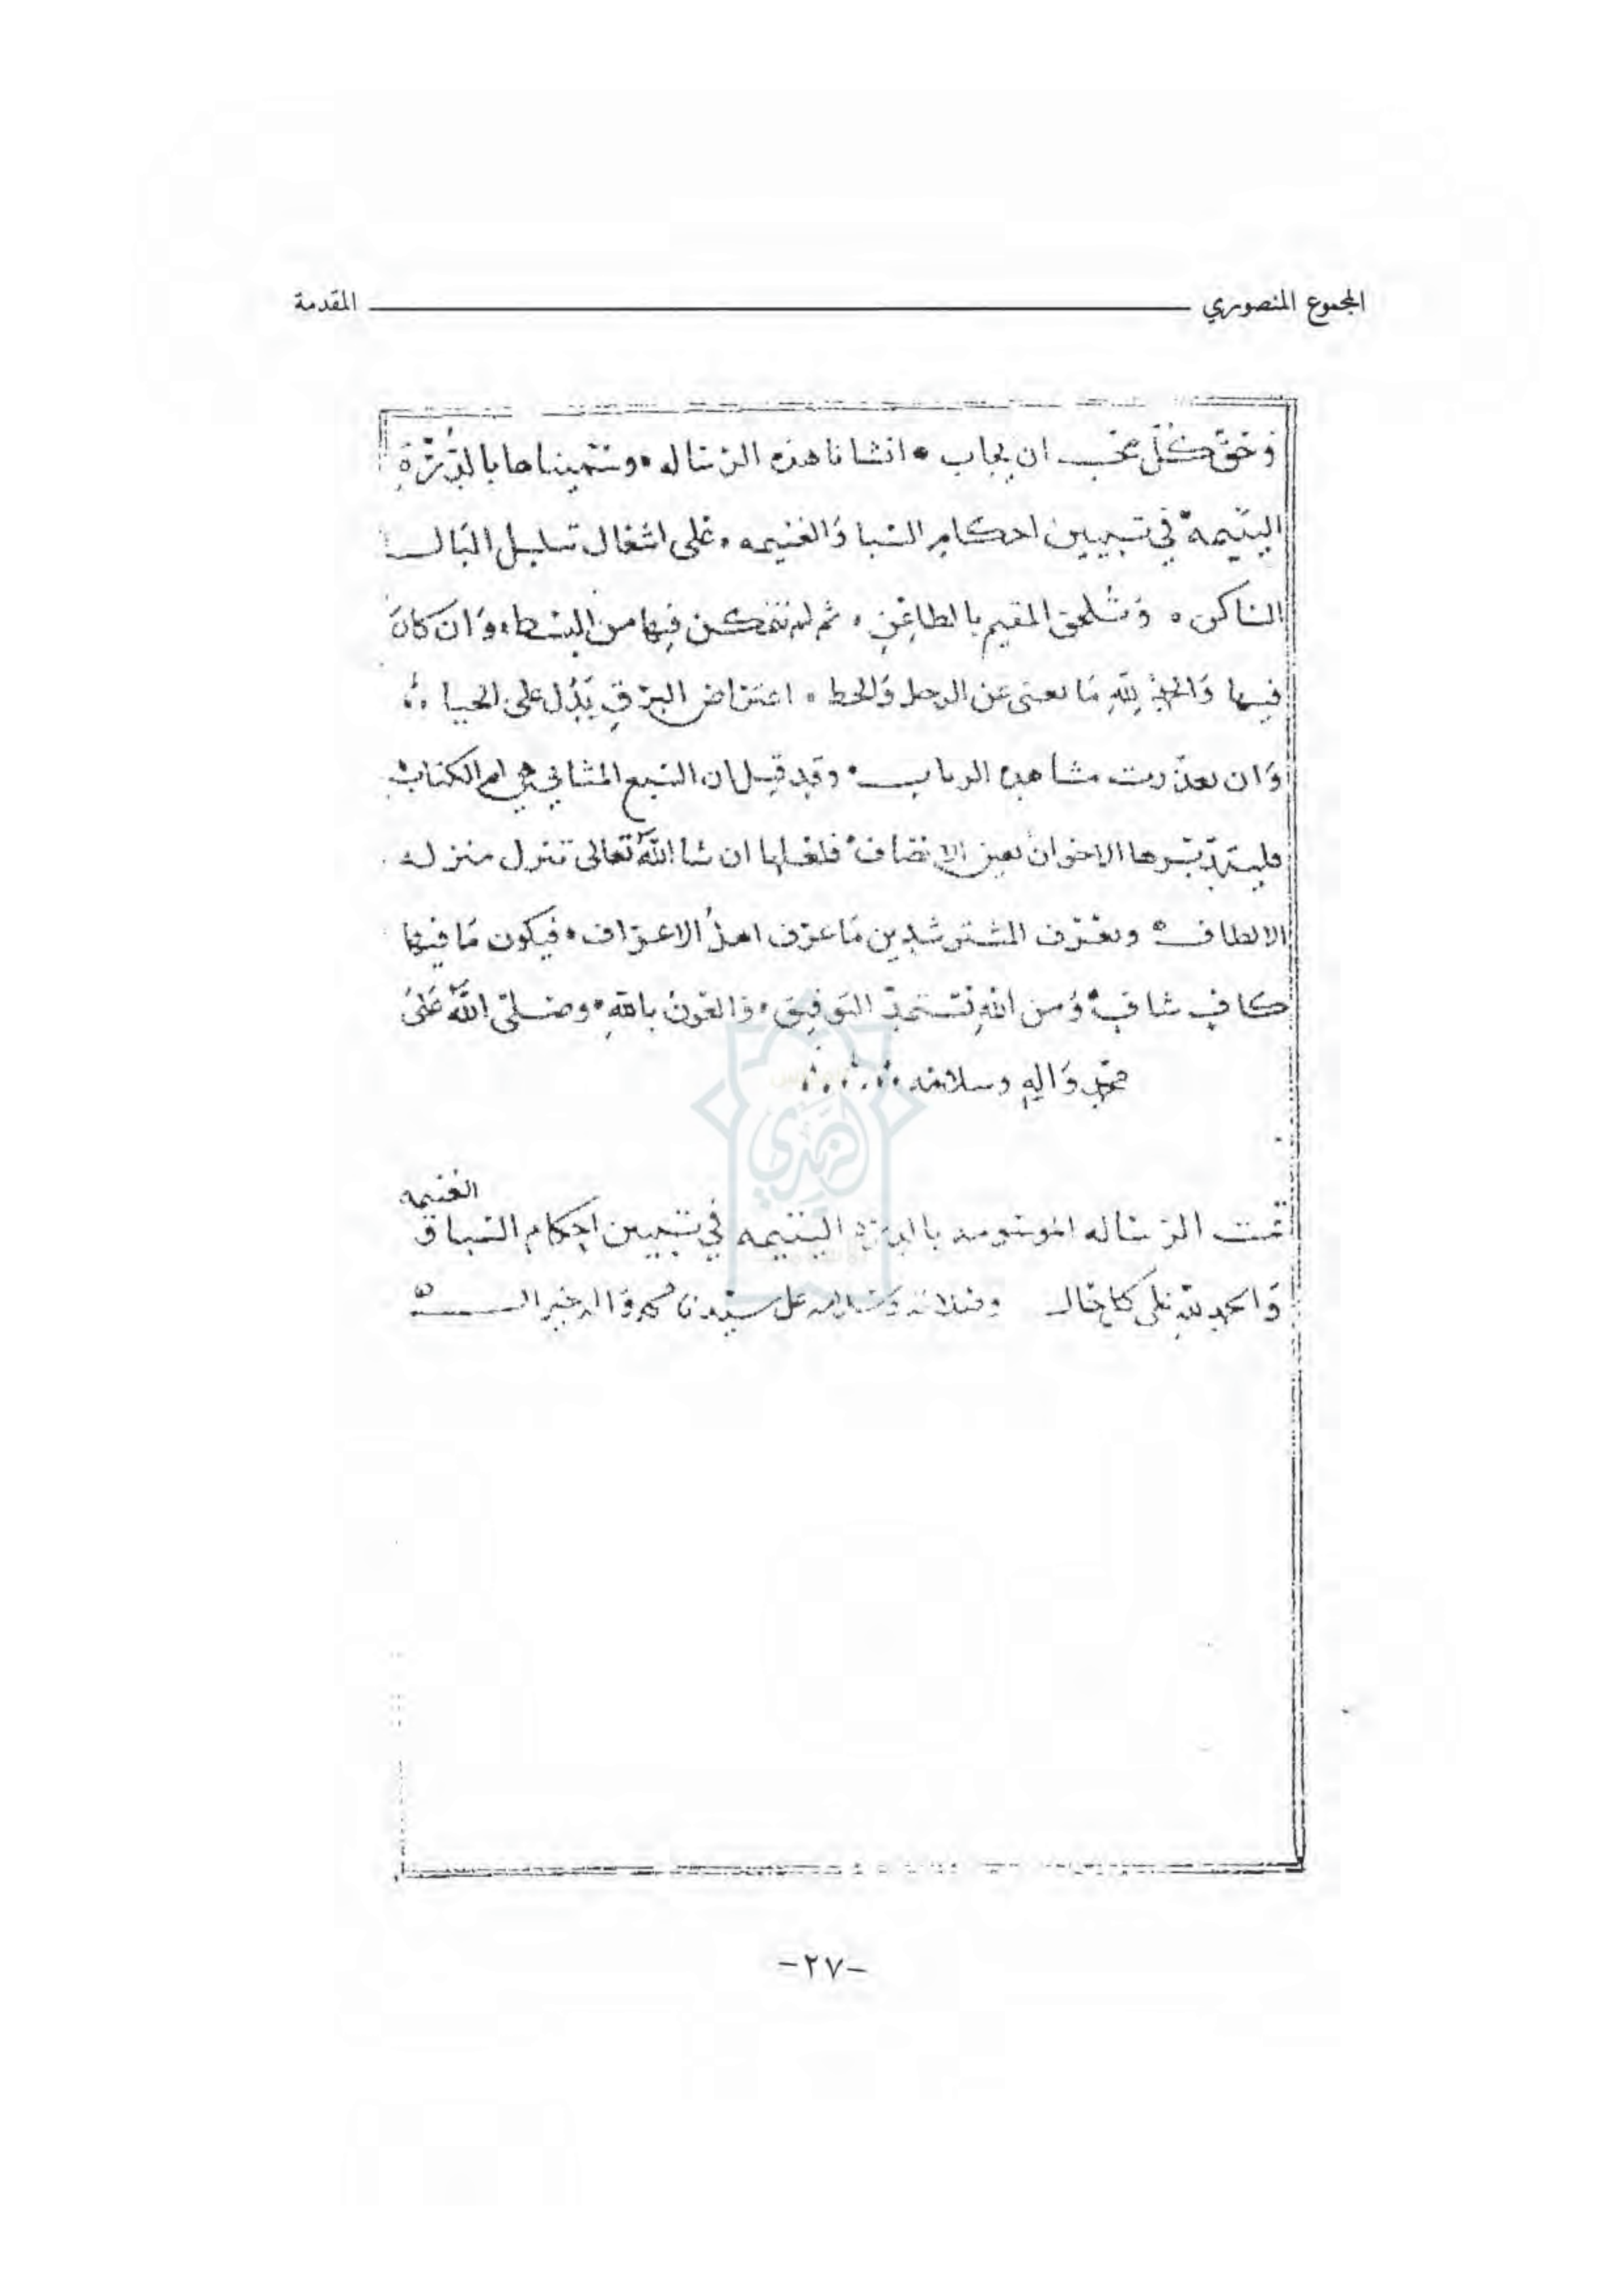 المجموع المنصوري المقدمة
وحق كل محب ان يجاب • انشانا هذه الرساله • وسميناها بالدُّرّة
اليتيمة في تبيين احكام السبا وَالغنيمه • على اشغال تبلبل البَال
الساكن • وَتُلحق المقيم بالظاعِن • ثم لم نتمكن فيها من البسط • وَان كان
فيها وَالحمد لله مَا يعنى عن الرحل وَالحط • اعتراض البرق يَدُل على الحيا
وَان تعذّرت مشاهده الرباب • وقد قيل ان السبع المثاني هي ام الكتاب
فليتدبّرها الاخوان بعين الانصاف فلعلها ان شا اللّه تعالى تنزل منزله
الالطاف • ويعرف المسترشدين مَا عرف اهلُ الاعراف • فيكون مَا فيها
كافٍ شافٍ • وَمن اللهِ نستمدّ التوفيق • وَالعَون باللهِ • وصلى اللّه عَلى
محمّدٍ وَالهِ وسلامه
الغنيمه
تمت الرساله الموسومه بالدره اليتيمه في تبيين احكام السبا و
وَالحمد للهِ على كل حال وصلاته وَسلامه على سيّدنا محمد وَاله خير ال
-٢٧-